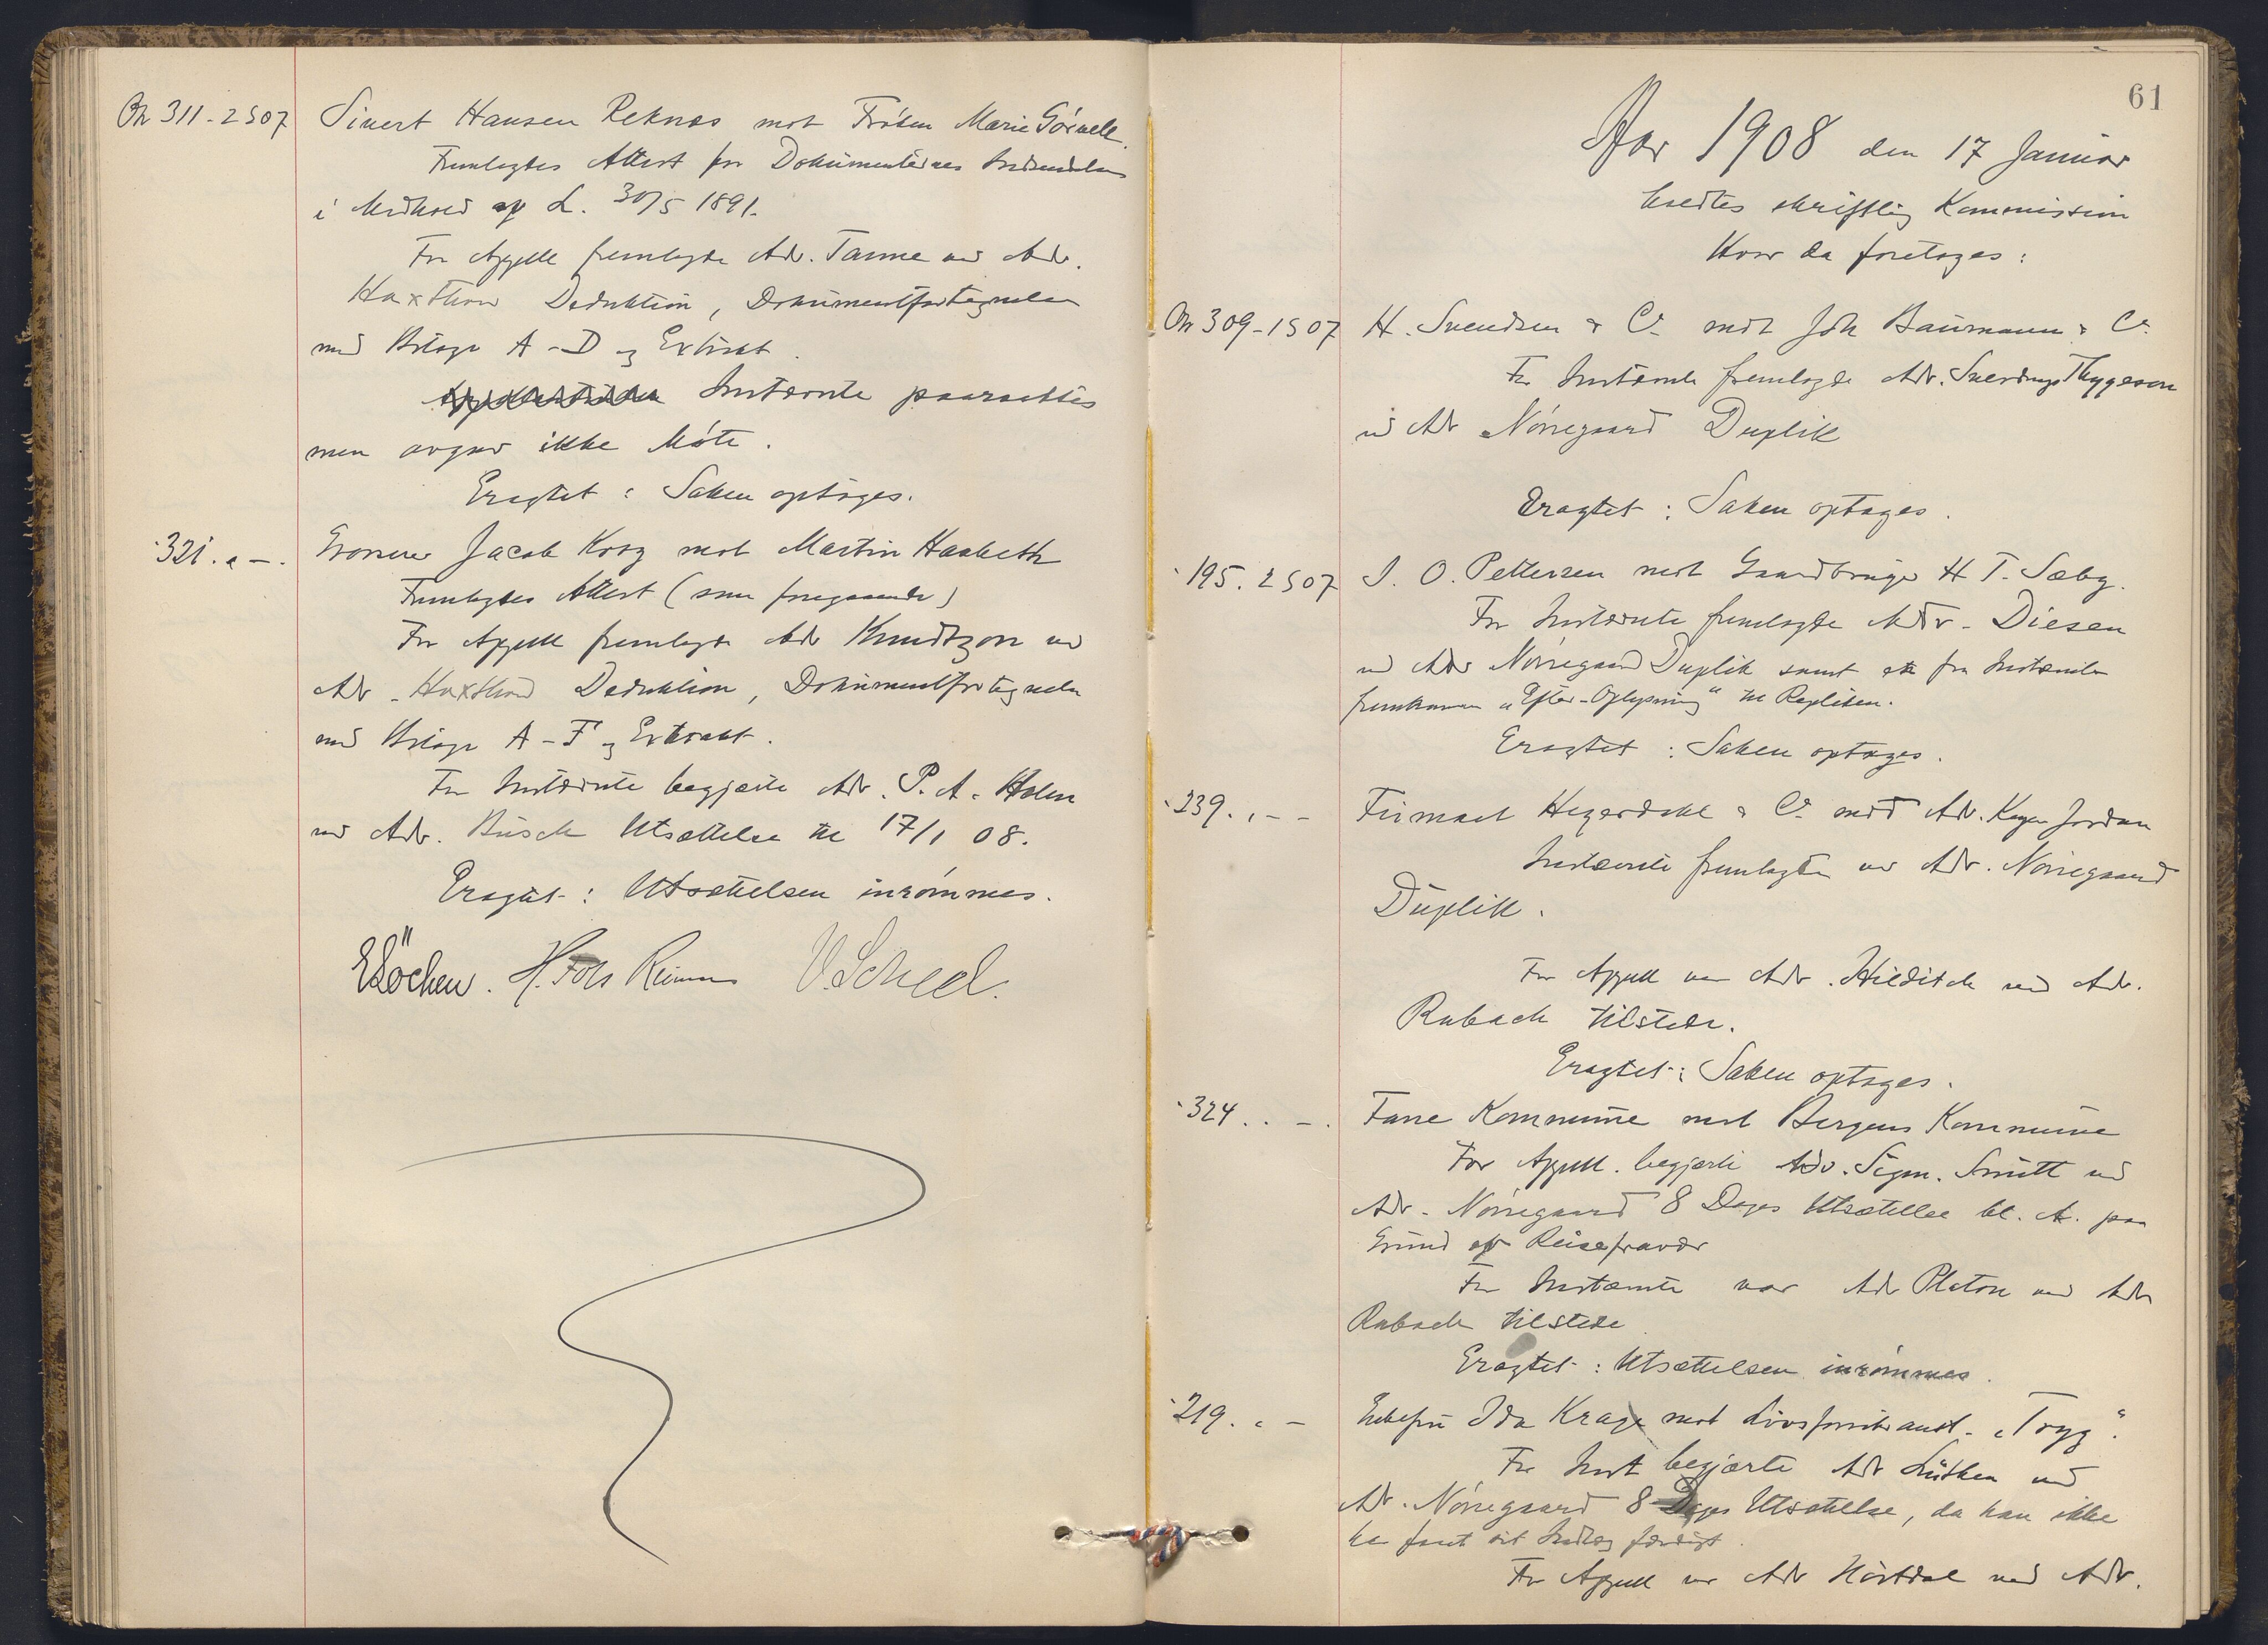 № 311 - 2 S 07 Sivert Hansen Reknes mot Fröken Marie Görvell.
Fremlagdes Attest for Dokumenternes Indsendelse
i Medhold af L. 30/5 1891.
For Appell fremlagde Adv. Tanne ved Adv.
Haxthow Deduktion, Dokumentfortegnelse
med Bilage A - D og Extrakt.
Instevnte paaraabtes
men avgav ikke Möte.
Eragtet: Saken optages.
" 321. " - . Grosserer Jacob Krog mot Martin Haabeth
Fremlagdes Attest (som foregaaende)
For Appell fremlagde Adv Knudtzon ved
Adv. Haxthow Deduktion, Dokumentfortegnelse
med Bilage A - F og Extrakt.
For Instevnte begjærte Adv. P. A. Holm
ved Adv. Büsch Utsættelse til 17/1 08.
Eragtet: Utsættelsen inrömmes.
E Löchen. H. Foss Reimers V. Scheel.
61
Aar 1908 den 17 Januar
holdtes skriftlig Kommission
Hvor da foretoges:
№ 309 - 1 S 07 H. Svendsen & Co mot Joh Baumann & Co.
For Instevnte fremlagde Adv. Sverdrup Thygeson
ved Adv Nörregaard Duplik
Eragtet: Saken optages.
" 195. 2 S 07 I. O. Pettersen mot Gaardbruger H T. Sæby.
For Instevnte fremlagde Adv. Diesen
ved Adv Nörregaard Duplik samt en fra Instevnte
fremkommen "Efter-Oplysning" til Repliken.
Eragtet: Saken optages.
" 239. " - - Firmaet Hegerdahl & Co mot Adv. Kayser Jordan
Instevnte fremlagde ved Adv. Nörregaard
Duplik.
For Appell var Adv. Hilditch ved Adv.
Rubach tilstede.
Eragtet: Saken optages.
" 324. . - . Fane Kommune mot Bergens Kommune
For Appell. begjærte Adv. Sigm. Smitt ved
Adv. Nörregaard 8 Dages Utsættelse bl. A. paa
Grund af Reisefravær
For Instevnte var Adv Platou ved Adv
Rubach tilstede
Eragtet: Utsættelsen inrömmes.
" 219. " - Enkefru Ida Krage mot Livsforsikranst. "Tryg".
For Inst begjærte Adv Lütken ved
Adv. Nörregaard 8 Dages Utsættelse, da han ikke
har faaet sit Indlæg færdigt.
For Appell var Adv Hörtdal ved Adv.